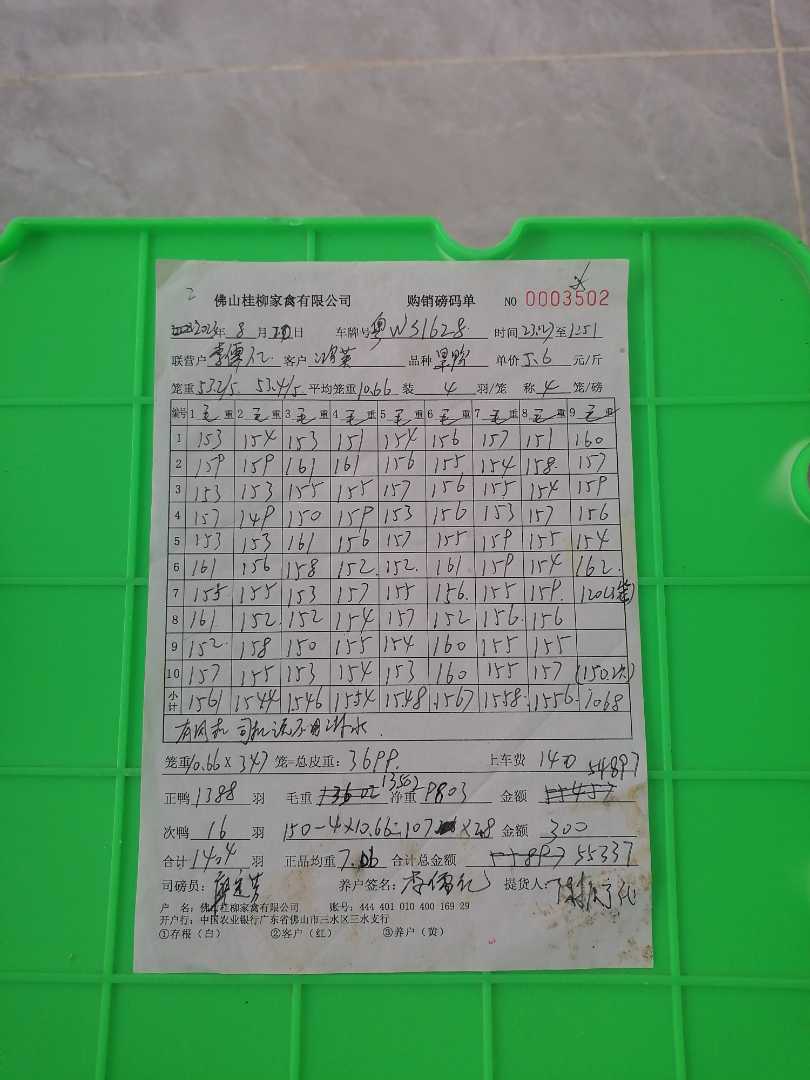 2
佛山桂柳家禽有限公司 购销磅码单 NO 0003502
2023年 8 月 日 车牌号 粤WS1628 时间 23:27 至 1:51
联营户 李儒礼 客户 鸿英 品种 单价 5.6 元/斤
笼重 53.2/5. 53.4/5 平均笼重 10.66 装 4 羽/笼 称 4 笼/磅
编号 1 毛 重 2 毛 重 3 毛 重 4 毛 重 5 毛 重 6 毛 重 7 毛 重 8 毛 重 9 毛 重
1 153 154 153 151 154 156 157 151 160
2 159 159 161 161 156 155 154 158 157
3 153 153 155 155 157 156 155 154 159
4 157 149 150 159 153 156 153 157 156
5 153 153 161 156 157 155 159 155 154
6 161 156 158 152 152 161 159 154 162
7 155 155 153 157 155 156 155 159 120(3笼)
8 161 152 152 154 157 152 156 156
9 152 158 150 155 154 160 155 155
10 157 155 153 154 153 160 155 157 (150.次)
小计 1561 1544 1546 1554 1548 1567 1558 1556 1068
有风机 司机说不用淋水.
笼重 10.66 X 347 笼=总皮重: 3699. 上车费 140
54897
正鸭 1388 羽 毛重 13502 净重 9803 金额
次鸭 16 羽 150-4×10.66=107 ×2.8 金额 300
合计 1404 羽 正品均重 7.06 合计总金额 55337
司磅员: 养户签名: 李儒礼 提货人:
户 名: 佛山桂柳家禽有限公司 账号: 444 401 010 400 169 29
开户行: 中国农业银行广东省佛山市三水区三水支行
①存根(白) ②客户(红) ③养户(黄)